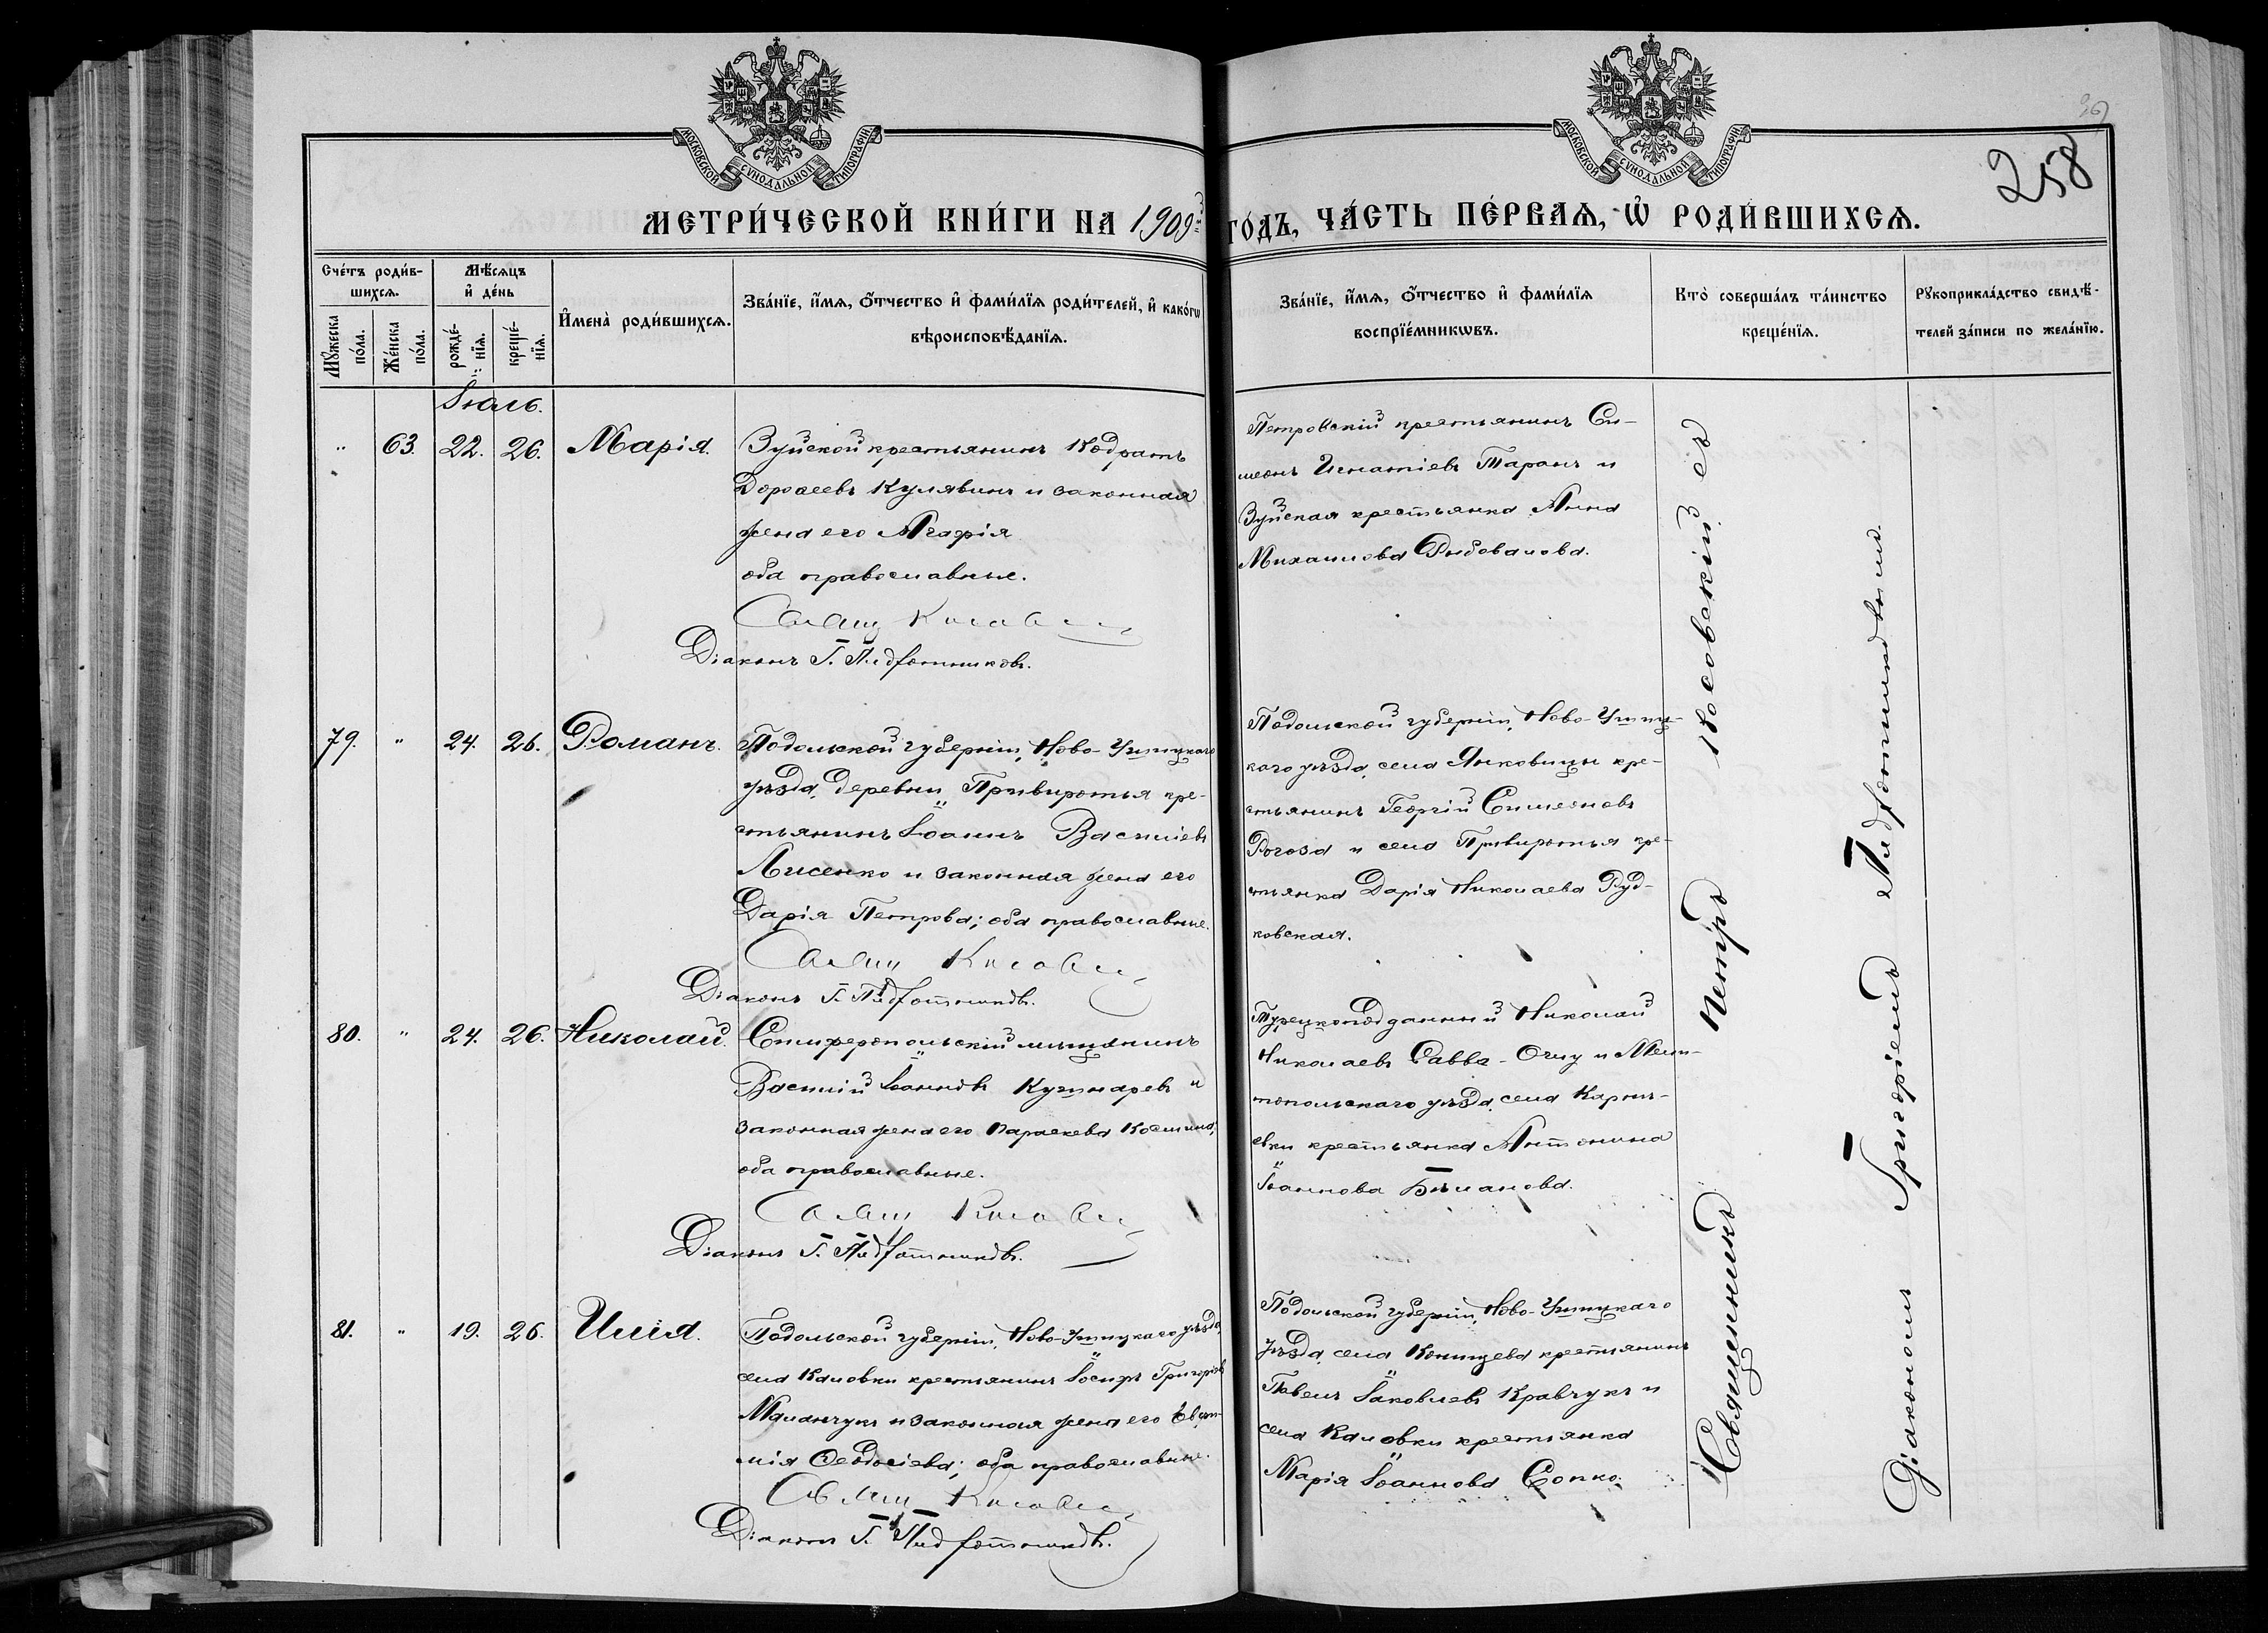 МОСКОВСКОЙ СУНОДАЛЬНОЙ ТИПОГРАФІИ
МОСКОВСКОЙ СУНОДАЛЬНОЙ ТИПОГРАФІИ
258
МЕТРИ́ЧЕСКОЙ КНИ́ГИ НА 1909й ГО́ДЪ, ЧА́СТЬ ПЕ́РВАѦ, Ѡ РОДИ́ВШИХСѦ.
Сче́тъ роди́в-
шихсѧ.
Мꙋ́жеска по́ла.
Же́нска по́ла.
Мѣ́сѧцъ
и҆ де́нь
рожде́-
нїѧ.
креще́-
нїѧ.
И҆мена̀ роди́вшихсѧ.
Зва́нїе, и҆́мѧ, ѻ҆́тчество и҆ фами́лїѧ роди́телей, и҆ како́гѡ
вѣроисповѣ́данїѧ.
Зва́нїе, и҆́мѧ, ѻ҆́тчество и҆ фами́лїѧ
воспрїе́мникѡвъ.
Кто̀ соверша́лъ та́инство
креще́нїѧ.
Рꙋкоприкла́дство свидѣ́-
телей за́писи по жела́нїю.
Іюль.
" 63. 22. 26. Марія.
Зуйской крестьянинъ Кодратъ
Дороѳеевъ Кулявинъ и законная
жена его Агафія
оба православные.
Діаконъ Г.
Петровскій крестьянинъ Си-
меонъ Игнатіевъ Таранъ и
Зуйская крестьянка Анна
Михаилова Рыбовалова.
79. " 24. 26. Романъ.
Подольской губерніи, Ново-Ушицкаго
уѣзда, деревни Привиротья кре-
стьянинъ Іоаннъ Василіевъ
Лисенко и законная жена его
Дарія Петрова; оба православные.
Діаконъ Г.
Подольской губерніи, Ново-Ушиц-
каго уѣзда, села Янковицы кре-
стьянинъ Георгій Симеоновъ
Рогоза и села Привиротья кре-
стьянка Дарія Николаева Руд-
ковская.
80. " 24. 26. Николай.
Симферопольскій мѣщанинъ
Василій Іоанновъ Кушнаревъ и
законная жена его Параскева Космина;
оба православные.
Діаконъ Г.
Турецкоподданный Николай
Николаевъ Савва-Оглу и Мели-
топольскаго уѣзда, села
крестьянка Антонина
Іоаннова Бѣланова.
81. " 19. 26. Илія.
Подольской губерніи, Ново-Ушицкаго уѣзда,
села Каловки крестьянинъ Іосифъ Григоріевъ
Маланчукъ и законная жена его Евфи-
мія Ѳеодосіева; оба православные.
Діаконъ Г.
Подольской губерніи, Ново-Ушицкаго
уѣзда, села Конищева крестьянинъ
Павелъ Іаковлевъ Кравчукъ и
села Каловки крестьянка
Марія Іоаннова Сопко.
Священникъ Петръ Косовскій съ
Діакономъ Григоріемъ